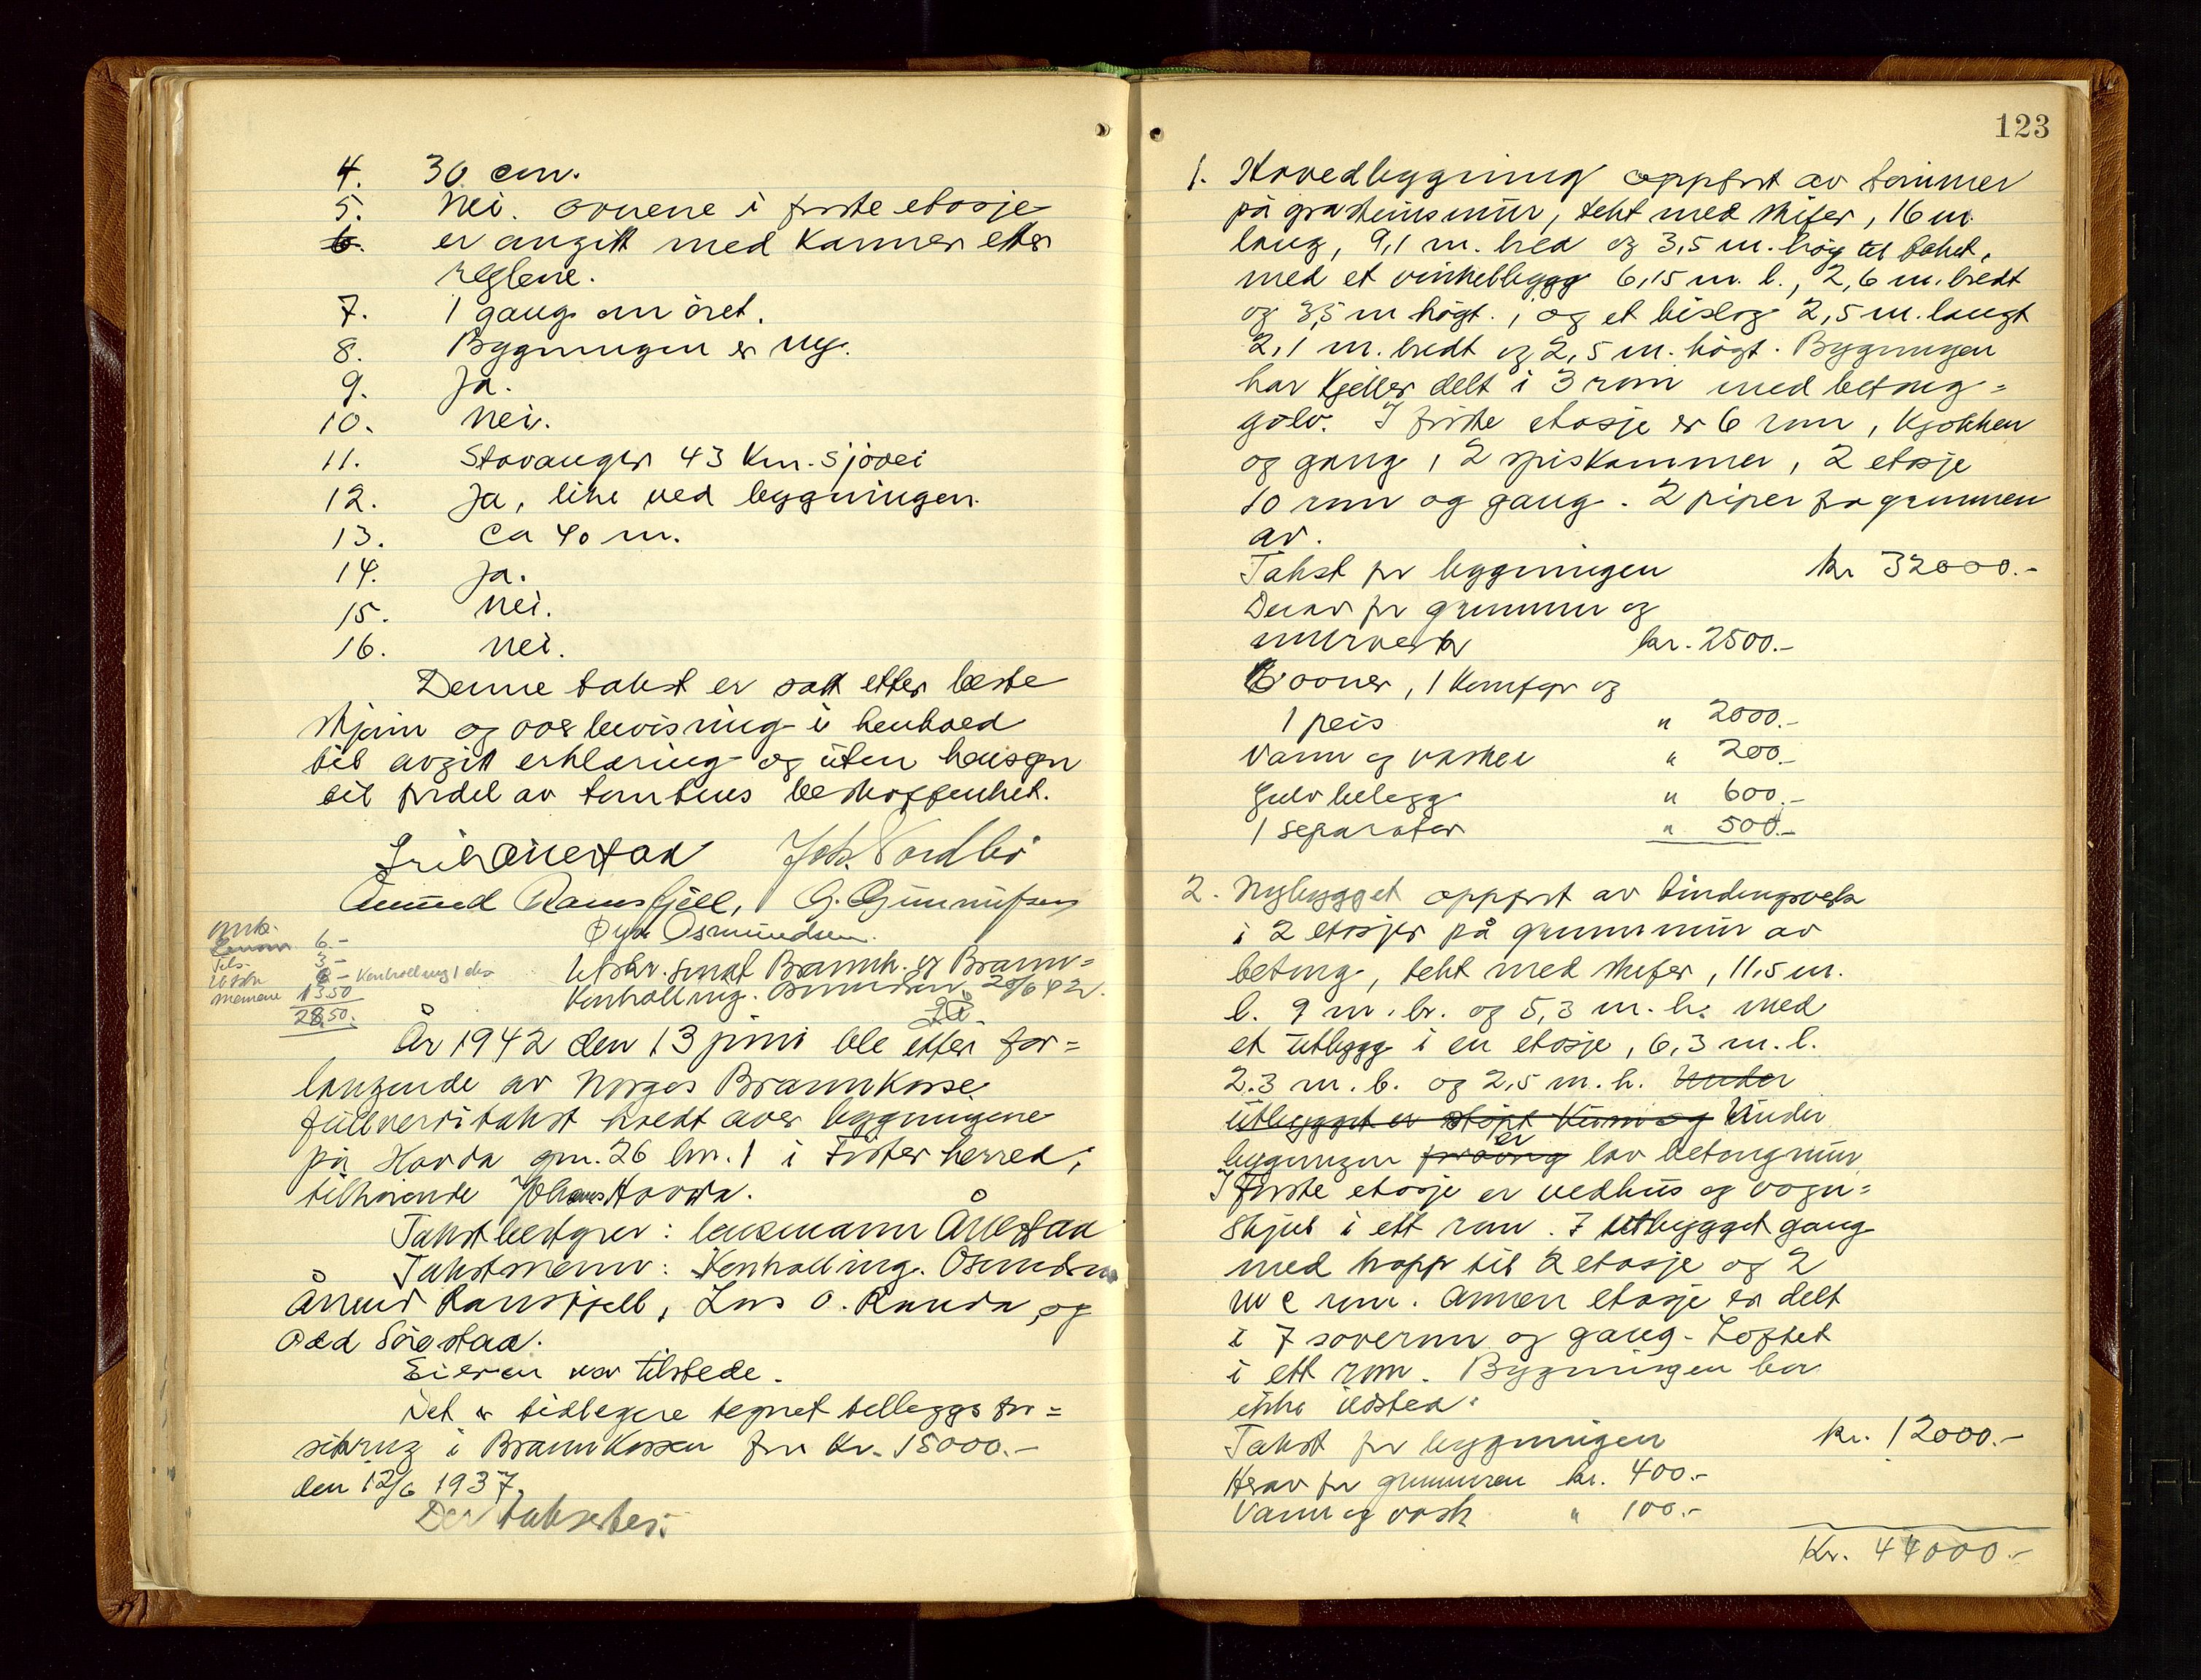 4. 30 cm.
5. Nei. Ovnene i første etasje
6. er angitt med Kammer etter
reglene.
7. 1 gang om året.
8. Bygningen er ny.
9. Ja.
10. Nei.
11. Stavanger 43 Km. Sjövei
12. Ja, like ved bygningen.
13. Ca 40 m.
14. Ja.
15. Nei.
16. Nei.
Denne takst er satt etter beste
skjönn og overbevisning i henhold
til avgitt erklæring og uten hensyn
til fordel av tomtens beskaffenhet.
Joh. Nordbö
Åmund Ramsfjell, G. Gunnufsen
Osmundsen.
Utskr. sendt Brannk. og Brann=
Kentrolling. Osmundsen 20/6 42.
6.-
3.-
6 - Kentrolling
13.50
28.50.
År 1942 den 13 juni ble etter for=
langende av Norges Brannkasse
fullverditakst holdt over bygningene
på Havda gnr. 26 bnr. 1 i Fister herred,
tilhörende Johannes Havda.
Takstbestyrer: lensmann Ållestad
Takstmenn: Kentrolling. Osmundsen
Åmund Ramsfjell, Lars O. Randa, og
Odd Sörestad.
Eieren var tilstede.
Det er tidligere tegnet tilleggsfor=
sikring i Brannkassen for Kr. 15000.-
den 12/6 1937.
Der takseres:
123
1. Hovedbygning oppført av tømmer
på gråsteinsmur, tekt med skifer, 16 m.
lang, 9,1 m. bred og 3,5 m. høg til taket,
med et vinkelbygg 6,15 m. l., 2,6 m. bredt
og 3,5 m högt., og et bislag 2,5 m. langt
2,1 m. bredt og 2,5 m. högt. Bygningen
har Kjeller delt i 3 rom med betong=
golv. I første etasje er 6 rom, Kjøkken
og gang, 2 spiskammer, 2 etasje
10 rom og gang. 2 piper fra grunnen
av.
Takst for bygningen kr 32000.-
Derav for grunnmur og
murverk kr. 2500.-
6 ovner, 1 Komfyr og
1 peis " 2000.-
Vann og vasker " 200.-
Gulvbelegg " 600.-
1 separator " 500.-
2. Nybygget oppført av bindingsverk
i 2 etasjer på grunnmur av
betong, tekt med skifer, 11,5 m.
l. 9 m. br. og 5,3 m. h. med
et utbygg i en etasje, 6,3 m. l.
2.3 m. b. og 2,5 m. h. Under
utbygget er støpt Kum og Under
bygningen forøvrig er lav betongmur
I første etasje er vedhus og vogn=
skjul i ett rom. I utbygget gang
med trapp til 2 etasje og 2
W C rom. Annen etasje er delt
i 7 soverom og gang. Loftet
i ett rom. Bygningen har
ikke ildsted.
Takst for bygningen kr. 12000.-
Herav for grunnmuren kr. 400.-
Vann og vask " 100.-
Kr. 44000.-